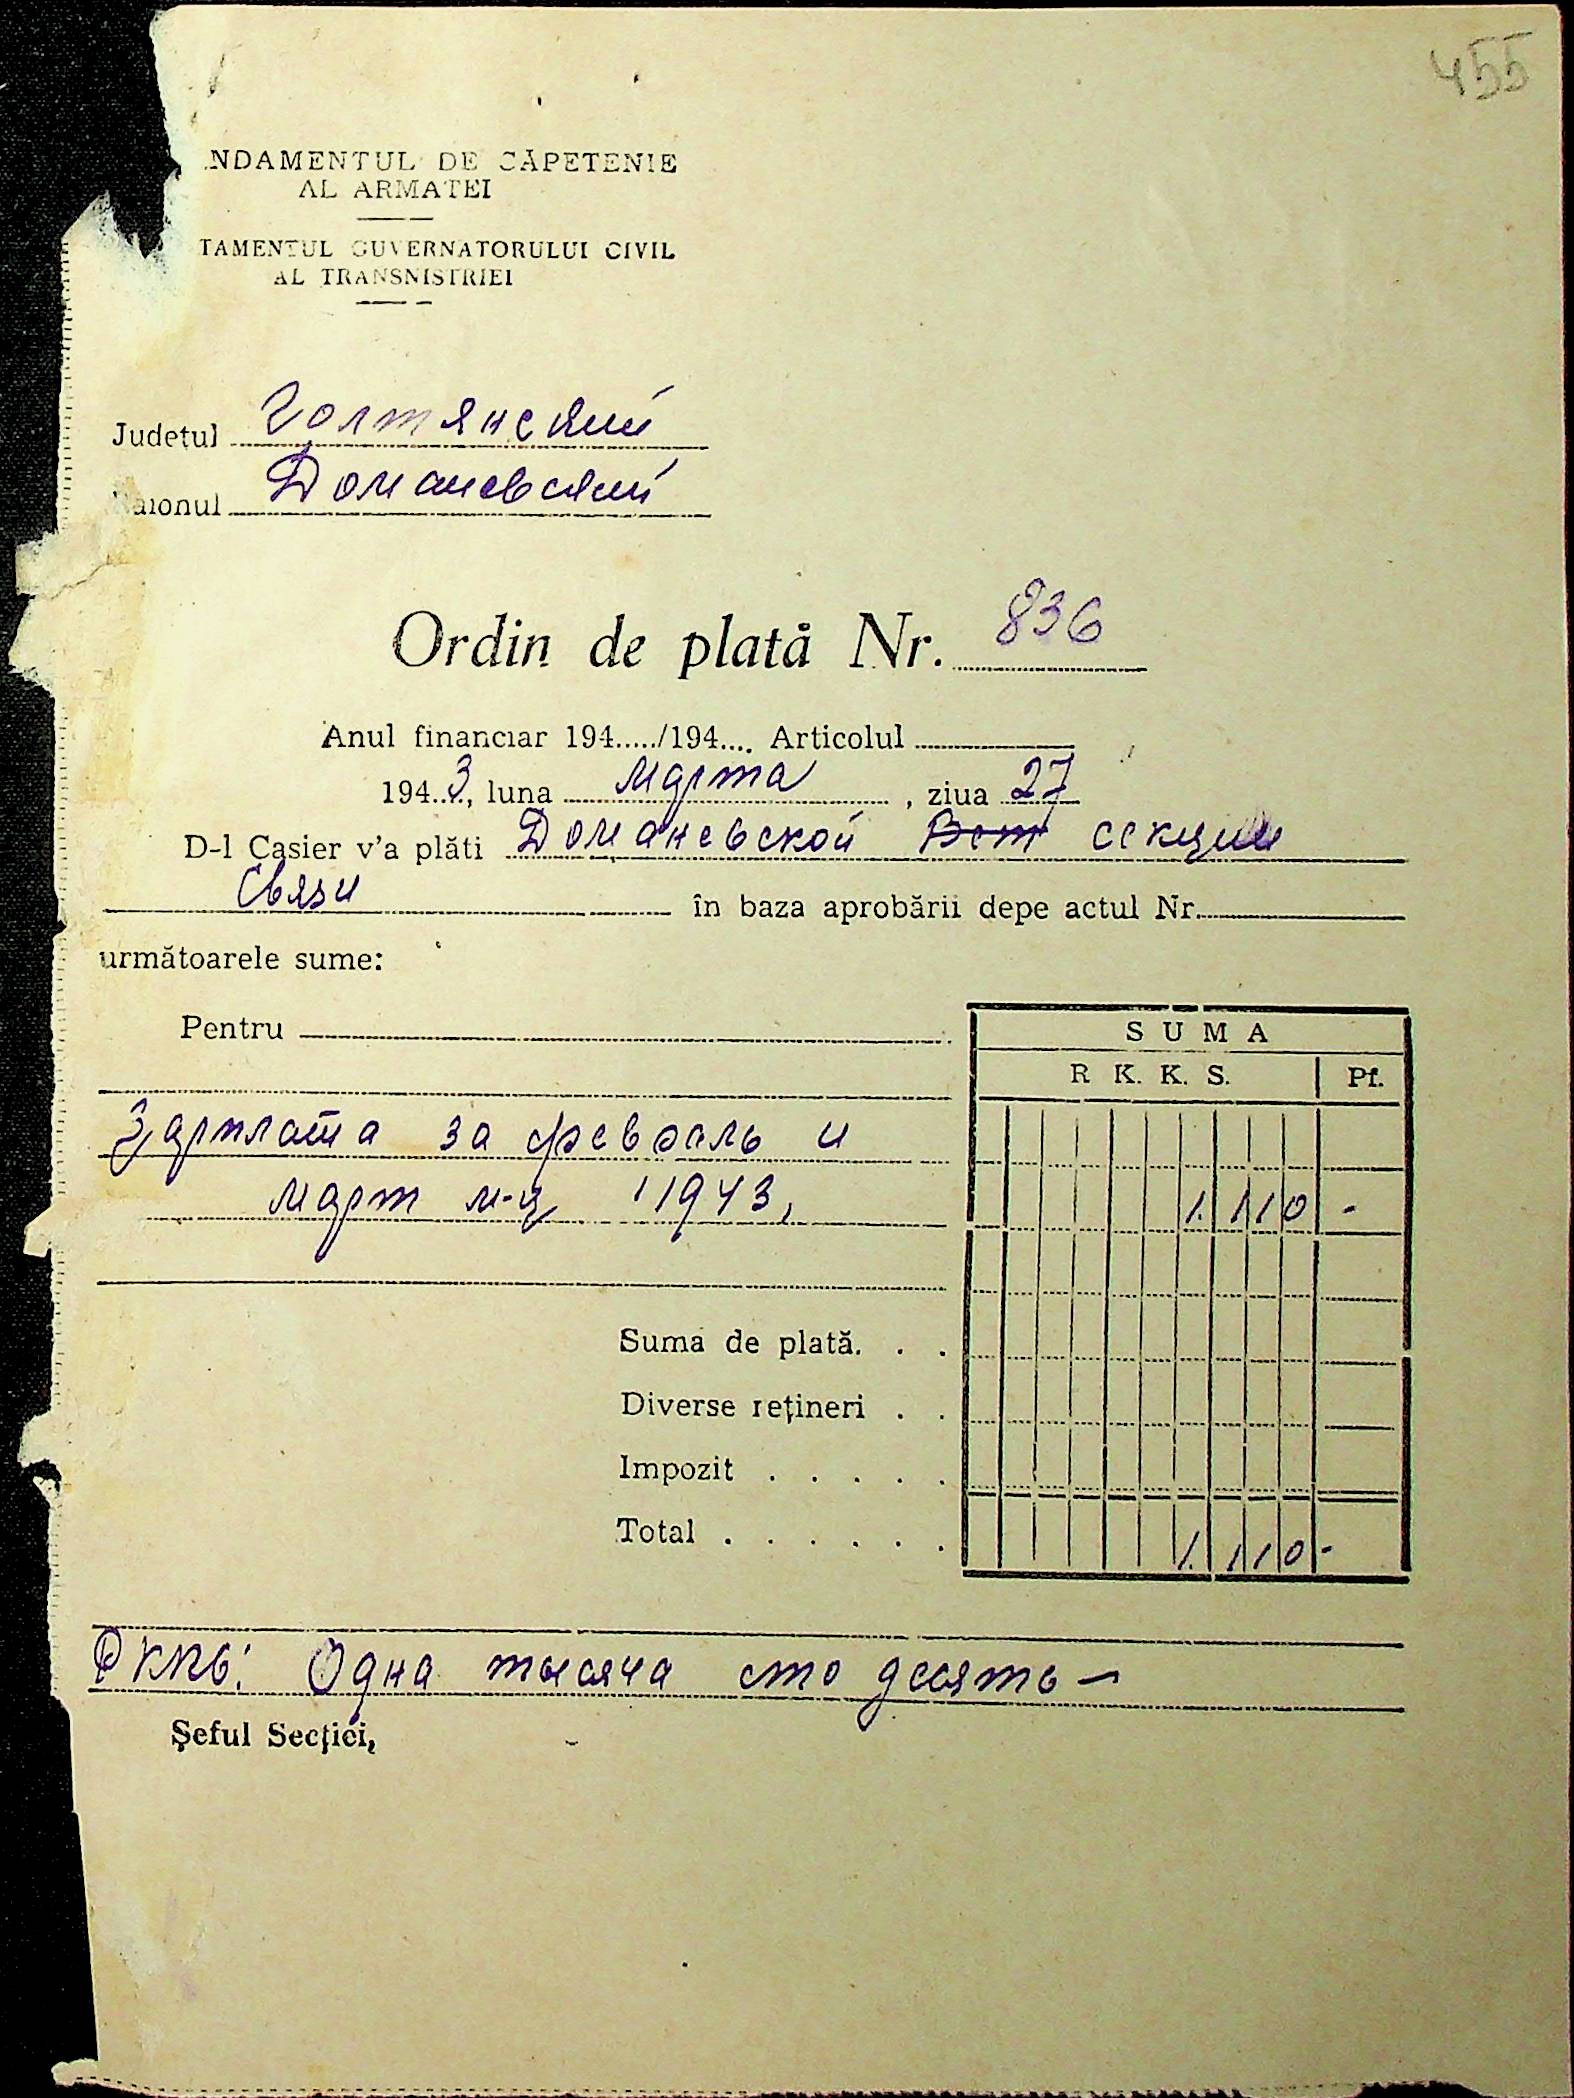 455
NDAMENTUL DE CĂPETENIE
AL ARMATEI
TAMENTUL GUVERNATORULUI CIVIL
AL TRANSNISTRIEI
Județul Голтянский
aionul Доманевский
Ordin de plată Nr. 836
Anul financiar 194...../194.... Articolul
194..3.., luna Марта , ziua 27
D-l Casier v'a plăti Доманевской Вет секции
Связи în baza aprobării depe actul Nr.
următoarele sume:
Pentru
SUMA
R K. K. S. Pf.
Зарплата за февраль и
март м-ц 1943, 1.110 -
Suma de plată. . .
Diverse rețineri . .
Impozit . . . . .
Total . . . . . . 1.110 -
Одна тысяча сто десять —
Șeful Secției,